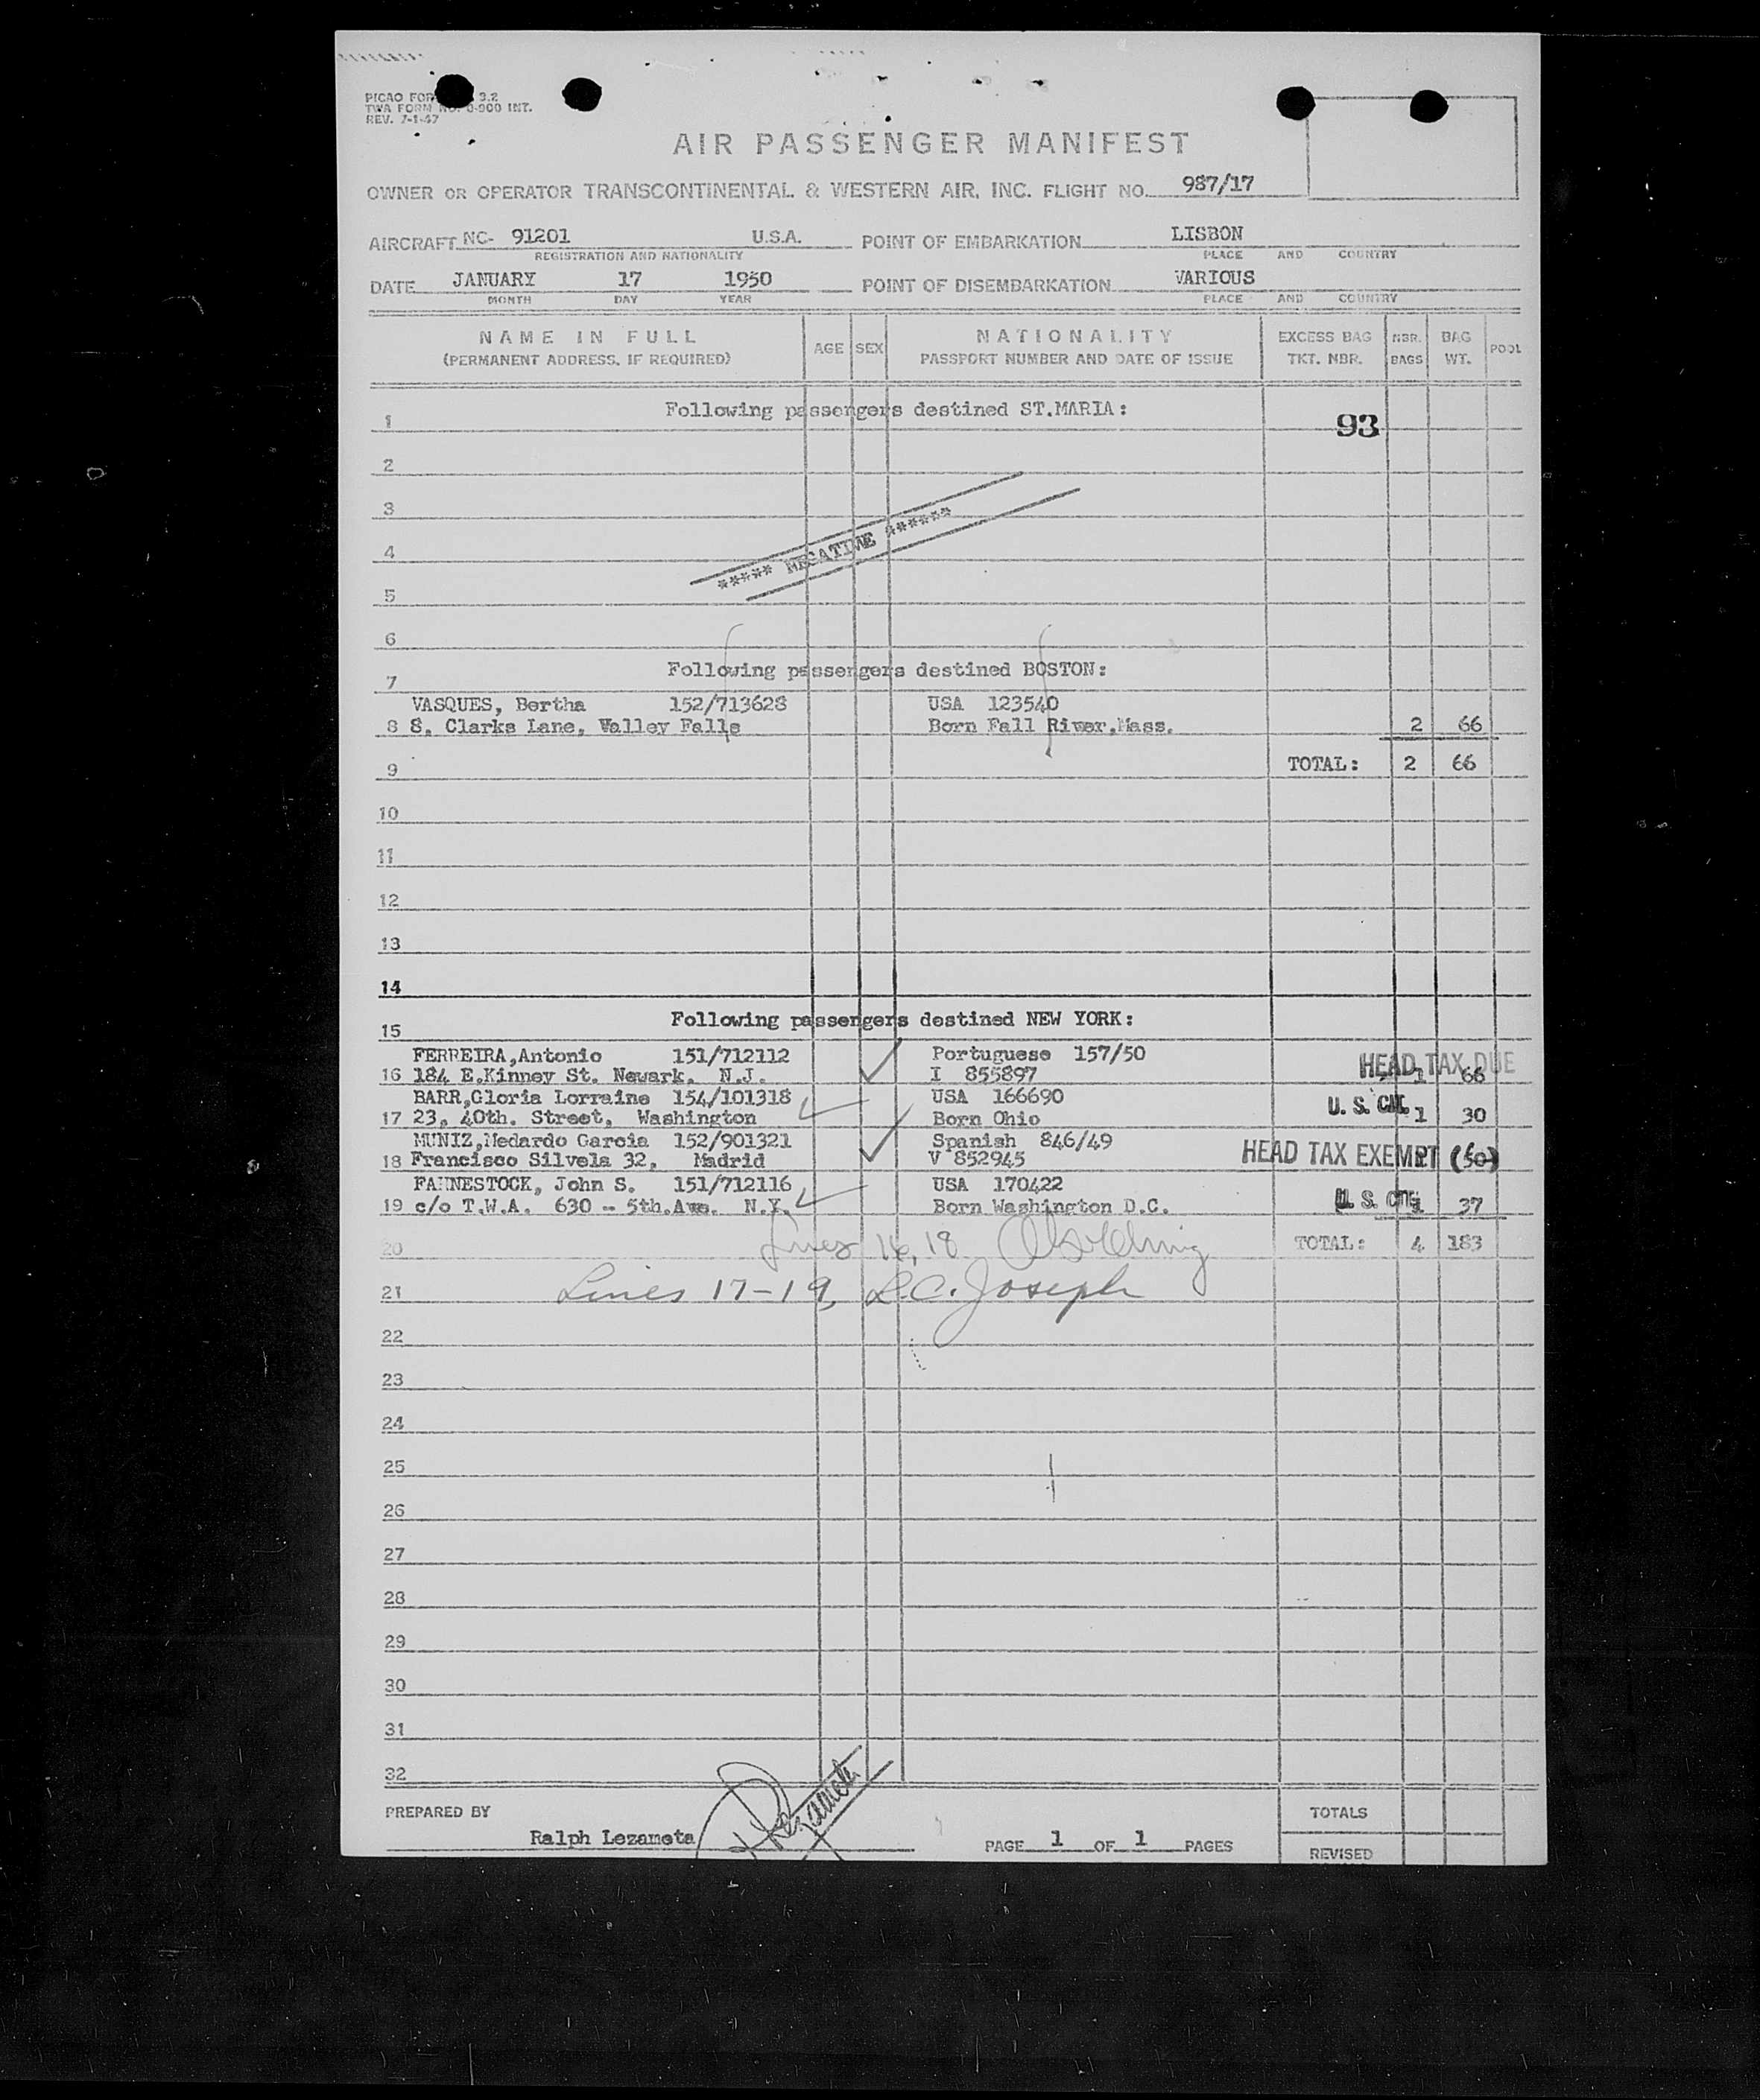 PICAO FOR 3.2
TWA FORM NO. 0-900 INT.
REV. 7-1-47
AIR PASSENGER MANIFEST
OWNER OR OPERATOR TRANSCONTINENTAL & WESTERN AIR, INC. FLIGHT NO. 987/17
AIRCRAFT NC- 91201 U.S.A. POINT OF EMBARKATION LISBON
REGISTRATION AND NATIONALITY PLACE AND COUNTRY
DATE JANUARY 17 1950 POINT OF DISEMBARKATION VARIOUS
MONTH DAY YEAR PLACE AND COUNTRY
NAME IN FULL AGE SEX NATIONALITY EXCESS BAG NBR. BAG POOL
(PERMANENT ADDRESS, IF REQUIRED) PASSPORT NUMBER AND DATE OF ISSUE TKT. NBR. BAGS WT.
1 Following passengers destined ST.MARIA: 93
2
3
4 ***** NEGATIVE ******
5
6
7 Following passengers destined BOSTON:
VASQUES, Bertha 152/713628 USA 123540
8 S. Clarks Lane, Valley Falls Born Fall River,Mass. 2 66
9 TOTAL: 2 66
10
11
12
13
14
15 Following passengers destined NEW YORK:
FERREIRA,Antonio 151/712112 Portuguese 157/50 HEAD TAX DUE
16 184 E.Kinney St. Newark. N.J. I 855897 1 66
BARR,Gloria Lorraine 154/101318 USA 166690 U. S. CIT.
17 23, 40th. Street, Washington Born Ohio 1 30
MUNIZ,Medardo Garcia 152/901321 Spanish 846/49 HEAD TAX EXEMPT
18 Francisco Silvela 32, Madrid V 852945 (50)
FAHNESTOCK, John S. 151/712116 USA 170422 U. S. CIT.
19 c/o T.W.A. 630 -- 5th.Ave. N.Y. Born Washington D.C. 1 37
20 Lines 16, 18 TOTAL: 4 183
21 Lines 17-19, L.C. Joseph
22
23
24
25
26
27
28
29
30
31
32
PREPARED BY TOTALS
Ralph Lezameta PAGE 1 OF 1 PAGES REVISED